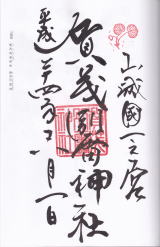 山城國一之宮
賀茂別雷神社
平成二十四年十一月一日